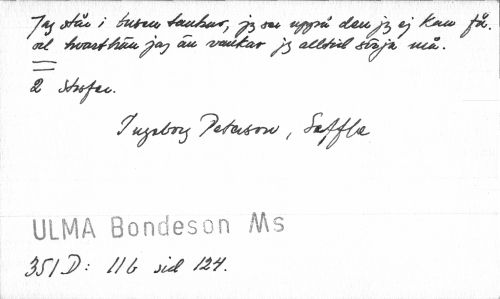 Jag står i tusen tankar, jg ser uppå den jg ej kan få.
och hvarthän jag än vankar jg alltid sörja må.
2 strofer.
Ingeborg Peterson, Säffle
ULMA Bondeson Ms
351 D: 116 sid 124.